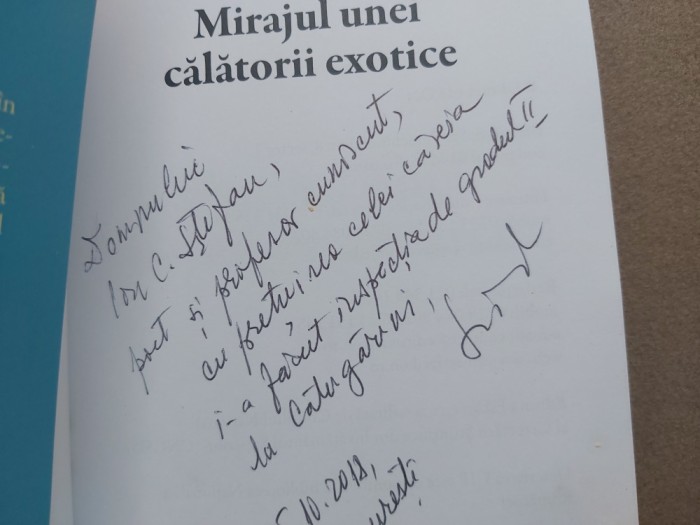 Mirajul unei
călătorii exotice
Domnului
Ion C. Ștefan,
poet și profesor cunoscut,
cu prețuirea celei căreia
i-a făcut inspecția de gradul II
la Călugăreni,
10.2018,
în